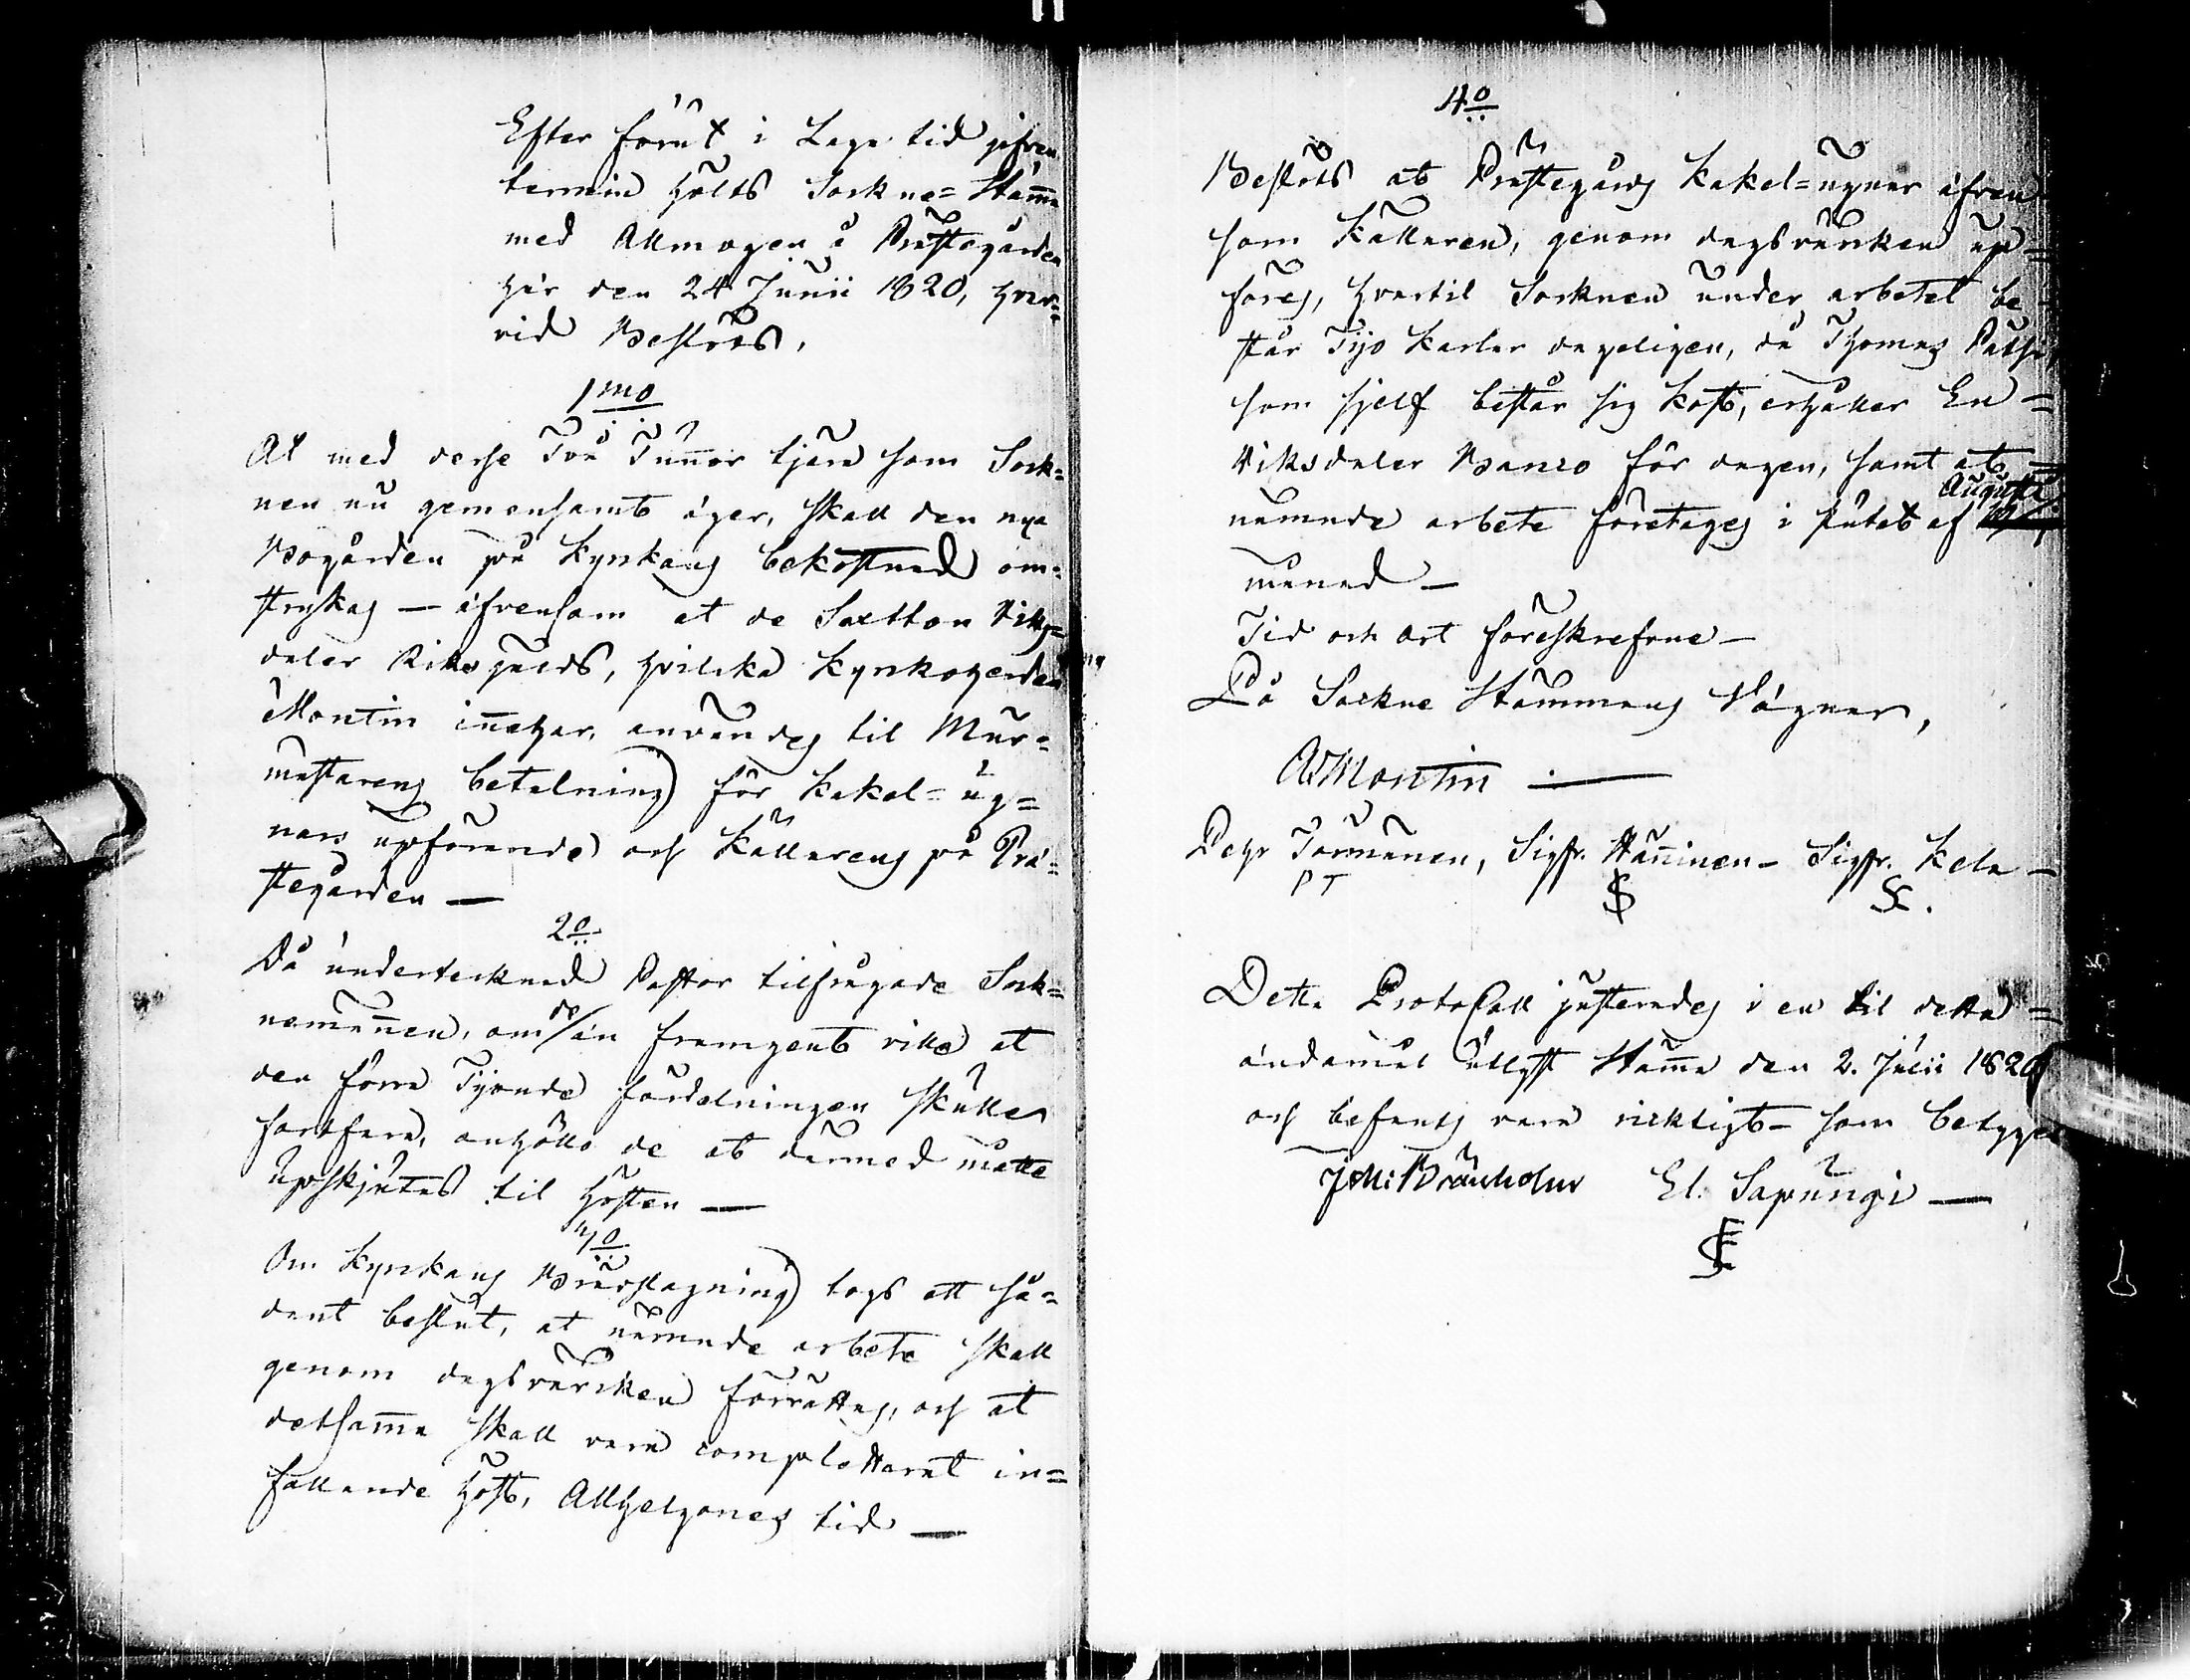 Efter förut i Laga tid gifven
termin hölts Sockne=Stäma
med Allmogen å Prästegården
här den 24 Junii 1820, hvar=
vid Beslöts,
1mo
At med desse Två Tunnor tjära som Sock=
nen nu gemensamt äger, skall den nya
Bogården på Kyrkans bekostnad om=
strykas — äfvensom at de Sextton Riks=
daler Riksgälds, hvilcka Kyrkoherden
Montin innehar, användes til Mur=
mästarens betalning för Kakel=ug=
nars upförande och Källarens på Prä=
stegården —
2o
Då undertecknad Pastor tilfrågade Sock=
nemännen, om de än framgent ville at
den förra Tijonde fördelningen skulle
fortfara, anhöllo de at dermed måtte
upskjutas til hösten —
3o
Om Kyrkans Brädslagning togs ett så=
dant beslut, at nämnde arbete skall
genom dagsvärcken förrättas, och at
detsamma skall vara completterat in=
fallande höst, Allhelgones tid —
4o
Beslöts at Prästegårds Kakel=ugnar äfven
som Källaren, genom dagsvärcken up=
föras, hvartil Socknen under arbetet be=
står Tijo Karlar dageligen, då Thomas
som sjelf består sig kost, erhåller En=
Riksdaler Banco för dagen, samt at
Augusti
nämnde arbete företages i slutet af
månad —
Tid och Ort föreskrefne —
På Sockne Stämmans Vägnar,
AMontin —
Pehr Törmänen, Sigfr. Hänninen — Sigfr. Kela —
PT
Detta Protocoll justerades i en til detta
ändamål utlyst Stäma den 2. Julii 1820
och befants vara ricktigt — som betygas
El. Sapungi —